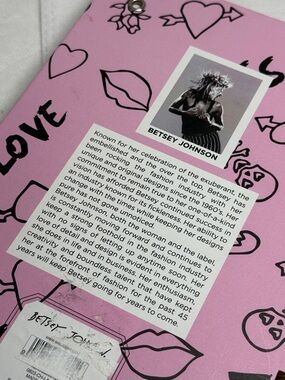 LOVE
BETSEY JOHNSON
Known for her celebration of the exuberant, the
embellished and the over the top, Betsey has
been rocking the fashion industry with her
unique and original designs since the 1960s. Her
commitment to remain true to her one-of-a-kind
vision has afforded Betsey continued success in
an industry known for its ability to change with the
pure has not gone unnoticed.
Betsey Johnson, both the woman and the label,
is constantly moving forward and continues to
keep a strong foothold in the fashion industry
with no signs of letting up anytime soon. Her
love of detail and design is evident in everything
she does in life and in business. Her enthusiasm,
creativity and boundless talent that have kept
her at the forefront of fashion for the past 45
years will keep Betsey going for years to come.
BETSEY JOHNSON.